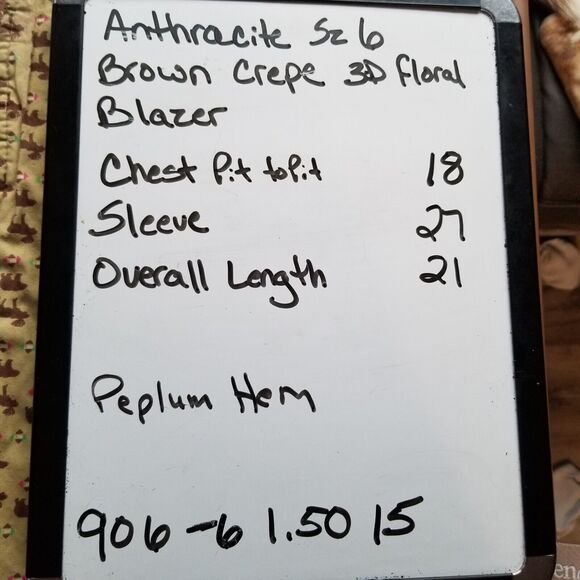 Anthracite Sz 6
Brown Crepe 3D floral
Blazer
Chest Pit to Pit 18
Sleeve 27
Overall Length 21
Peplum Hem
906-6 1.50 15